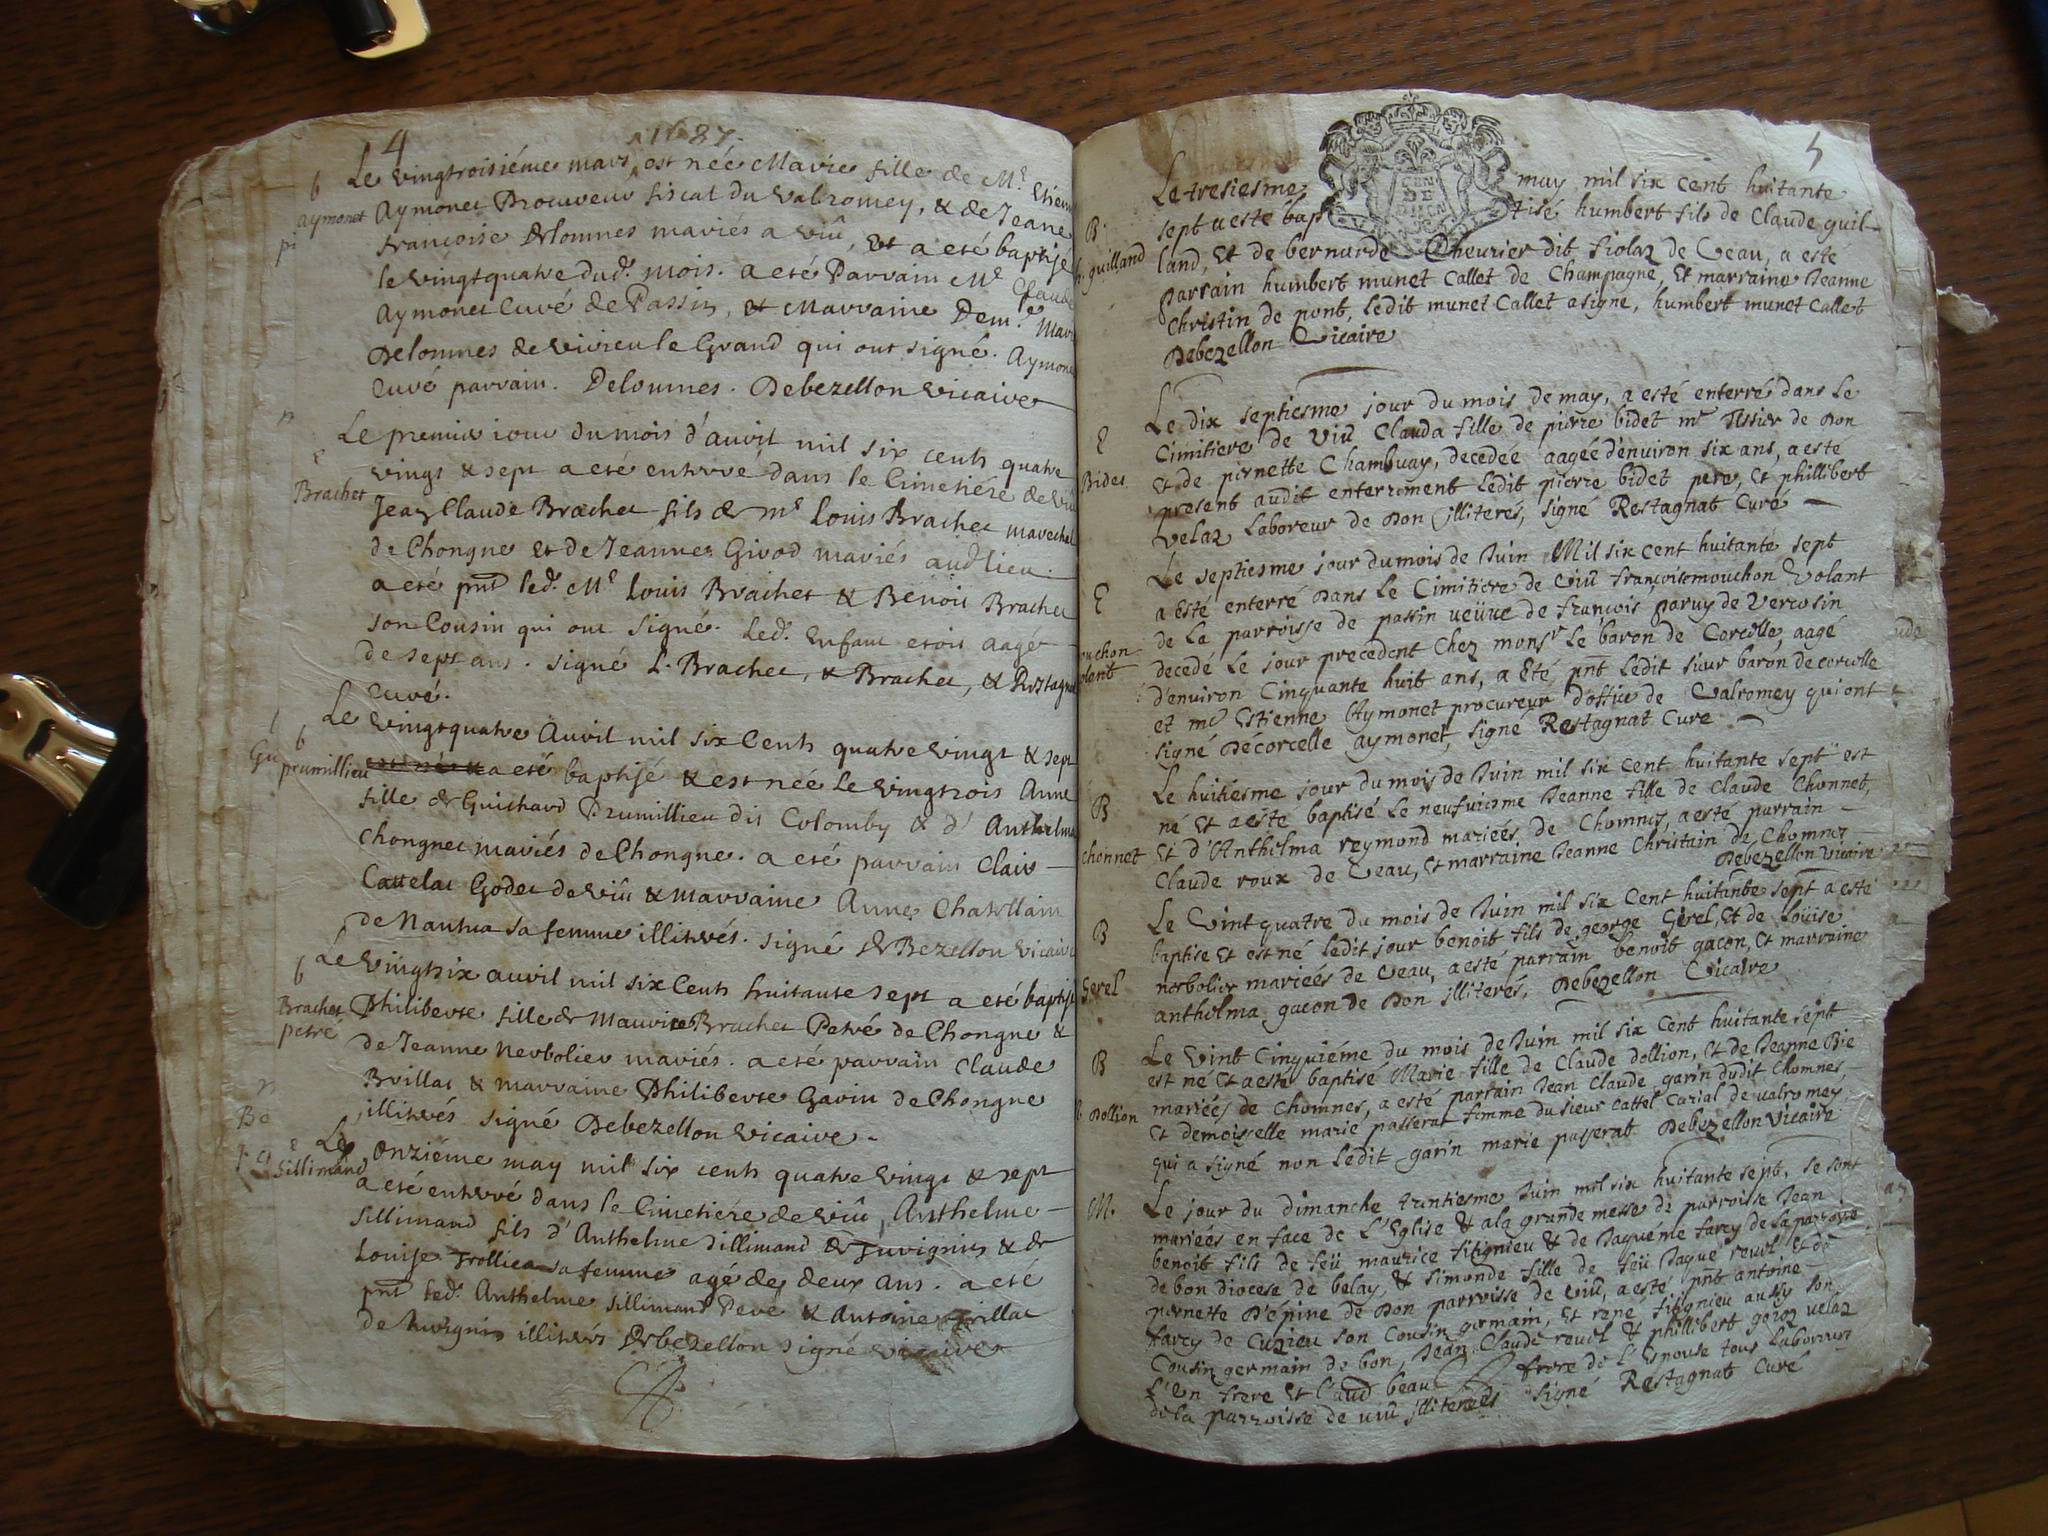 4
1687.
b
Le vingtroisiéme mars est née Marie fille de Mr. Etienn
aymonet
Aymonet Procureur fiscal du Valromey, & de Jeane
françoise Delomnes mariés a viû, Et a eté baptisé
le vingtquatre dud. mois. a eté Parrain Mr Claude
Aymonet Curé de Passin, & Marraine Dem.e Mari
Delomnes de virieu le Grand qui ont signé. Aymone
Curé parrain. Delomnes. Debezellon vicaire
Le premier iour du mois d'auril mil six cents quatre
e
Brachet
vings & sept a eté enterré dans le Cimetiére de viu
Jean Claude Brachet fils de mr Louis Brachet marechal
de Chongne et de Jeanne Girod mariés aud. lieu
a eté pnt led. Mr Louis Brachet & Benoit Brachet
son Cousin qui ont signé. Led. Enfant etoit aagé
de sept ans. signé L. Brachet, & Brachet, & Restagnat
Curé.
b
Le vingtquatre Auril mil six Cents quatre vingt & sept
prumillieu
a eté baptisé & est née le vingtrois Anne
fille de Guichard Prumillieu dit Colomby & d'Anthelma
Chongnet mariés de Chongne. a eté parrain Clair
Cattelat Godet de viû & marraine Anne Chatellain
de Nantua sa femme illiterés. signé De Bezellon vicaire
b
Le vingtsix auril mil six Cents huitante sept a eté baptisé
Brachet
petré
Philiberte fille de Maurice Brachet Petré de Chongne &
de Jeanne Nerbolier mariés. a eté parrain Claude
Brillat & marraine Philiberte Gavin de Chongne
illiterés signé Debezellon vicaire.
e
Le onziéme may mil six cents quatre vings & sept
Sillimand
a eté enterré dans le Cimetiére de viû, Anthelme
Sillimand fils d'Anthelme Sillimand de Juvignin & de
Louise Trollien sa femme agé de deux ans. a eté
pnt led. Anthelme Sillimand Pere & Antoine Trillat
de Juvignin illiterés Debezellon signé vicaire
5
Le tresiesme may mil six cent huitante
B.
sept a esté baptisé humbert fils de Claude guil-
guilland
land, Et de bernarde Cheurier dit fiolaz de Veau, a esté
parrain humbert munet Callet de Champagne, Et marraine Jeanne
Christin de pont, ledit munet Callet a signé, humbert munet Callet
Debezellon Vicaire
Le dix septiesme jour du mois de may, a esté enterré dans Le
E
Cimitiere de Viû Clauda fille de pierre bidet mr Tissier de Don
Bidet
Et de pernette Chambuay, decedée aagée d'enuiron six ans, a esté
present audit enterrement Ledit pierre bidet pere, Et phillibert
velaz Laboreur de Don jlliteres, signé Restagnat Curé
Le septiesme jour du mois de Juin Mil six cent huitante sept
E
a Esté enterré Dans Le Cimitiere de Viû françoise mouchon Volant
de La parroisse de passin veüve de françois paruy de Vercosin
decedé Le jour precedent Chez monsr Le baron de Corcelle, aagé
d'enuiron Cinquante huit ans, a Eté pnt Ledit sieur baron de corcelle
et mr Estienne Aymonet procureur d'office de Valromey qui ont
signé Décorcelle aymonet, signé Restagnat Curé
Le huitiesme jour du mois de Juin mil six cent huitante sept est
B
né Et a esté baptisé Le neufuiesme Jeanne fille de Claude Chonnet,
chonnet
Et d'Anthelma reymond mariéés de Chomnes, a esté parrain
Claude roux de Veau, Et marraine Jeanne Christain de Chomnes
Debezellon vicaire
Le Vint quatre du mois de Juin mil six Cent huitante sept a esté
B
baptise Et est né ledit jour benoit fils de george Gerel, Et de Loüise
Gerel
nerbolier mariéés de Veau, a esté parrain benoit gacon, Et marraine
anthelma gacon de Don jlliterés, Debezellon Vicaire
Le Vint Cinquiéme du mois de Juin mil six Cent huitante sept
B
est né Et a esté baptisé Marie fille de Claude dollion, Et de Jeanne Bie
Dollion
mariéés de Chomnes, a esté parrain Jean Claude garin dudit Chomnes
Et demoisselle marie passerat femme du sieur Cattel Curial de valromey
qui a signé non ledit garin marie passerat Debezellon Vicaire
M.
Le jour du dimanche trentiesme Juin mil six huitante sept, se sont
mariéés en face de L'Eglise & a la grande messe de parroisse Jean
benoit fils de feü maurice fitignieu & de Jaquéme farcy de la parroisse
de bon diocese de belay, & simonde fille de feü Jaque reuel & de
pernette D'épine de Don parroisse de viû, a esté pnt antoine
farcy de Cuzieu son Cousin germain, Et rené fitignieu aussy son
Cousin germain de bon, Jean Claude reuel & phillibert goioz velaz
L'en frere Et L'aud beau frere de L'espouse tous Laboreurs
de la parroisse de viû jlliterées signé Restagnat Curé